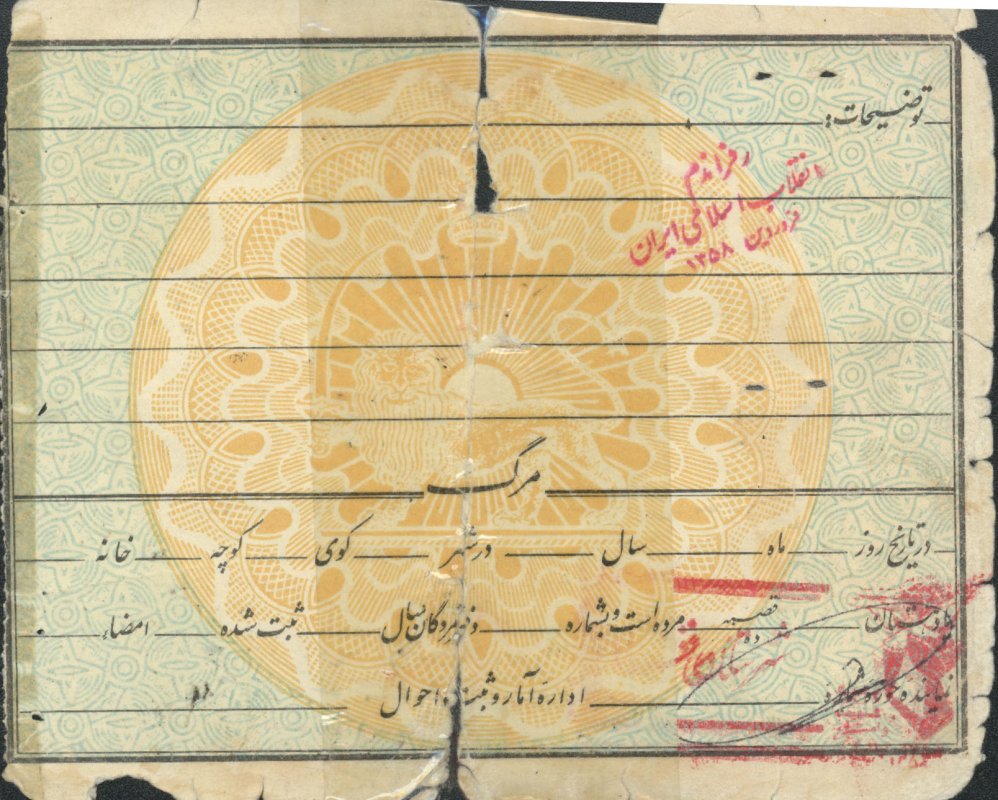 توضیحات:
رفراندم
انقلاب اسلامی ایران
فروردین ۱۳۵۸
مرگ
در تاریخ روز ماه سال در شهر کوی کوچه خانه
دهستان قصبه ده مرده است و بشماره دفتر مردگان سال ثبت شده امضاء
نماینده اداره آمار و ثبت احوال